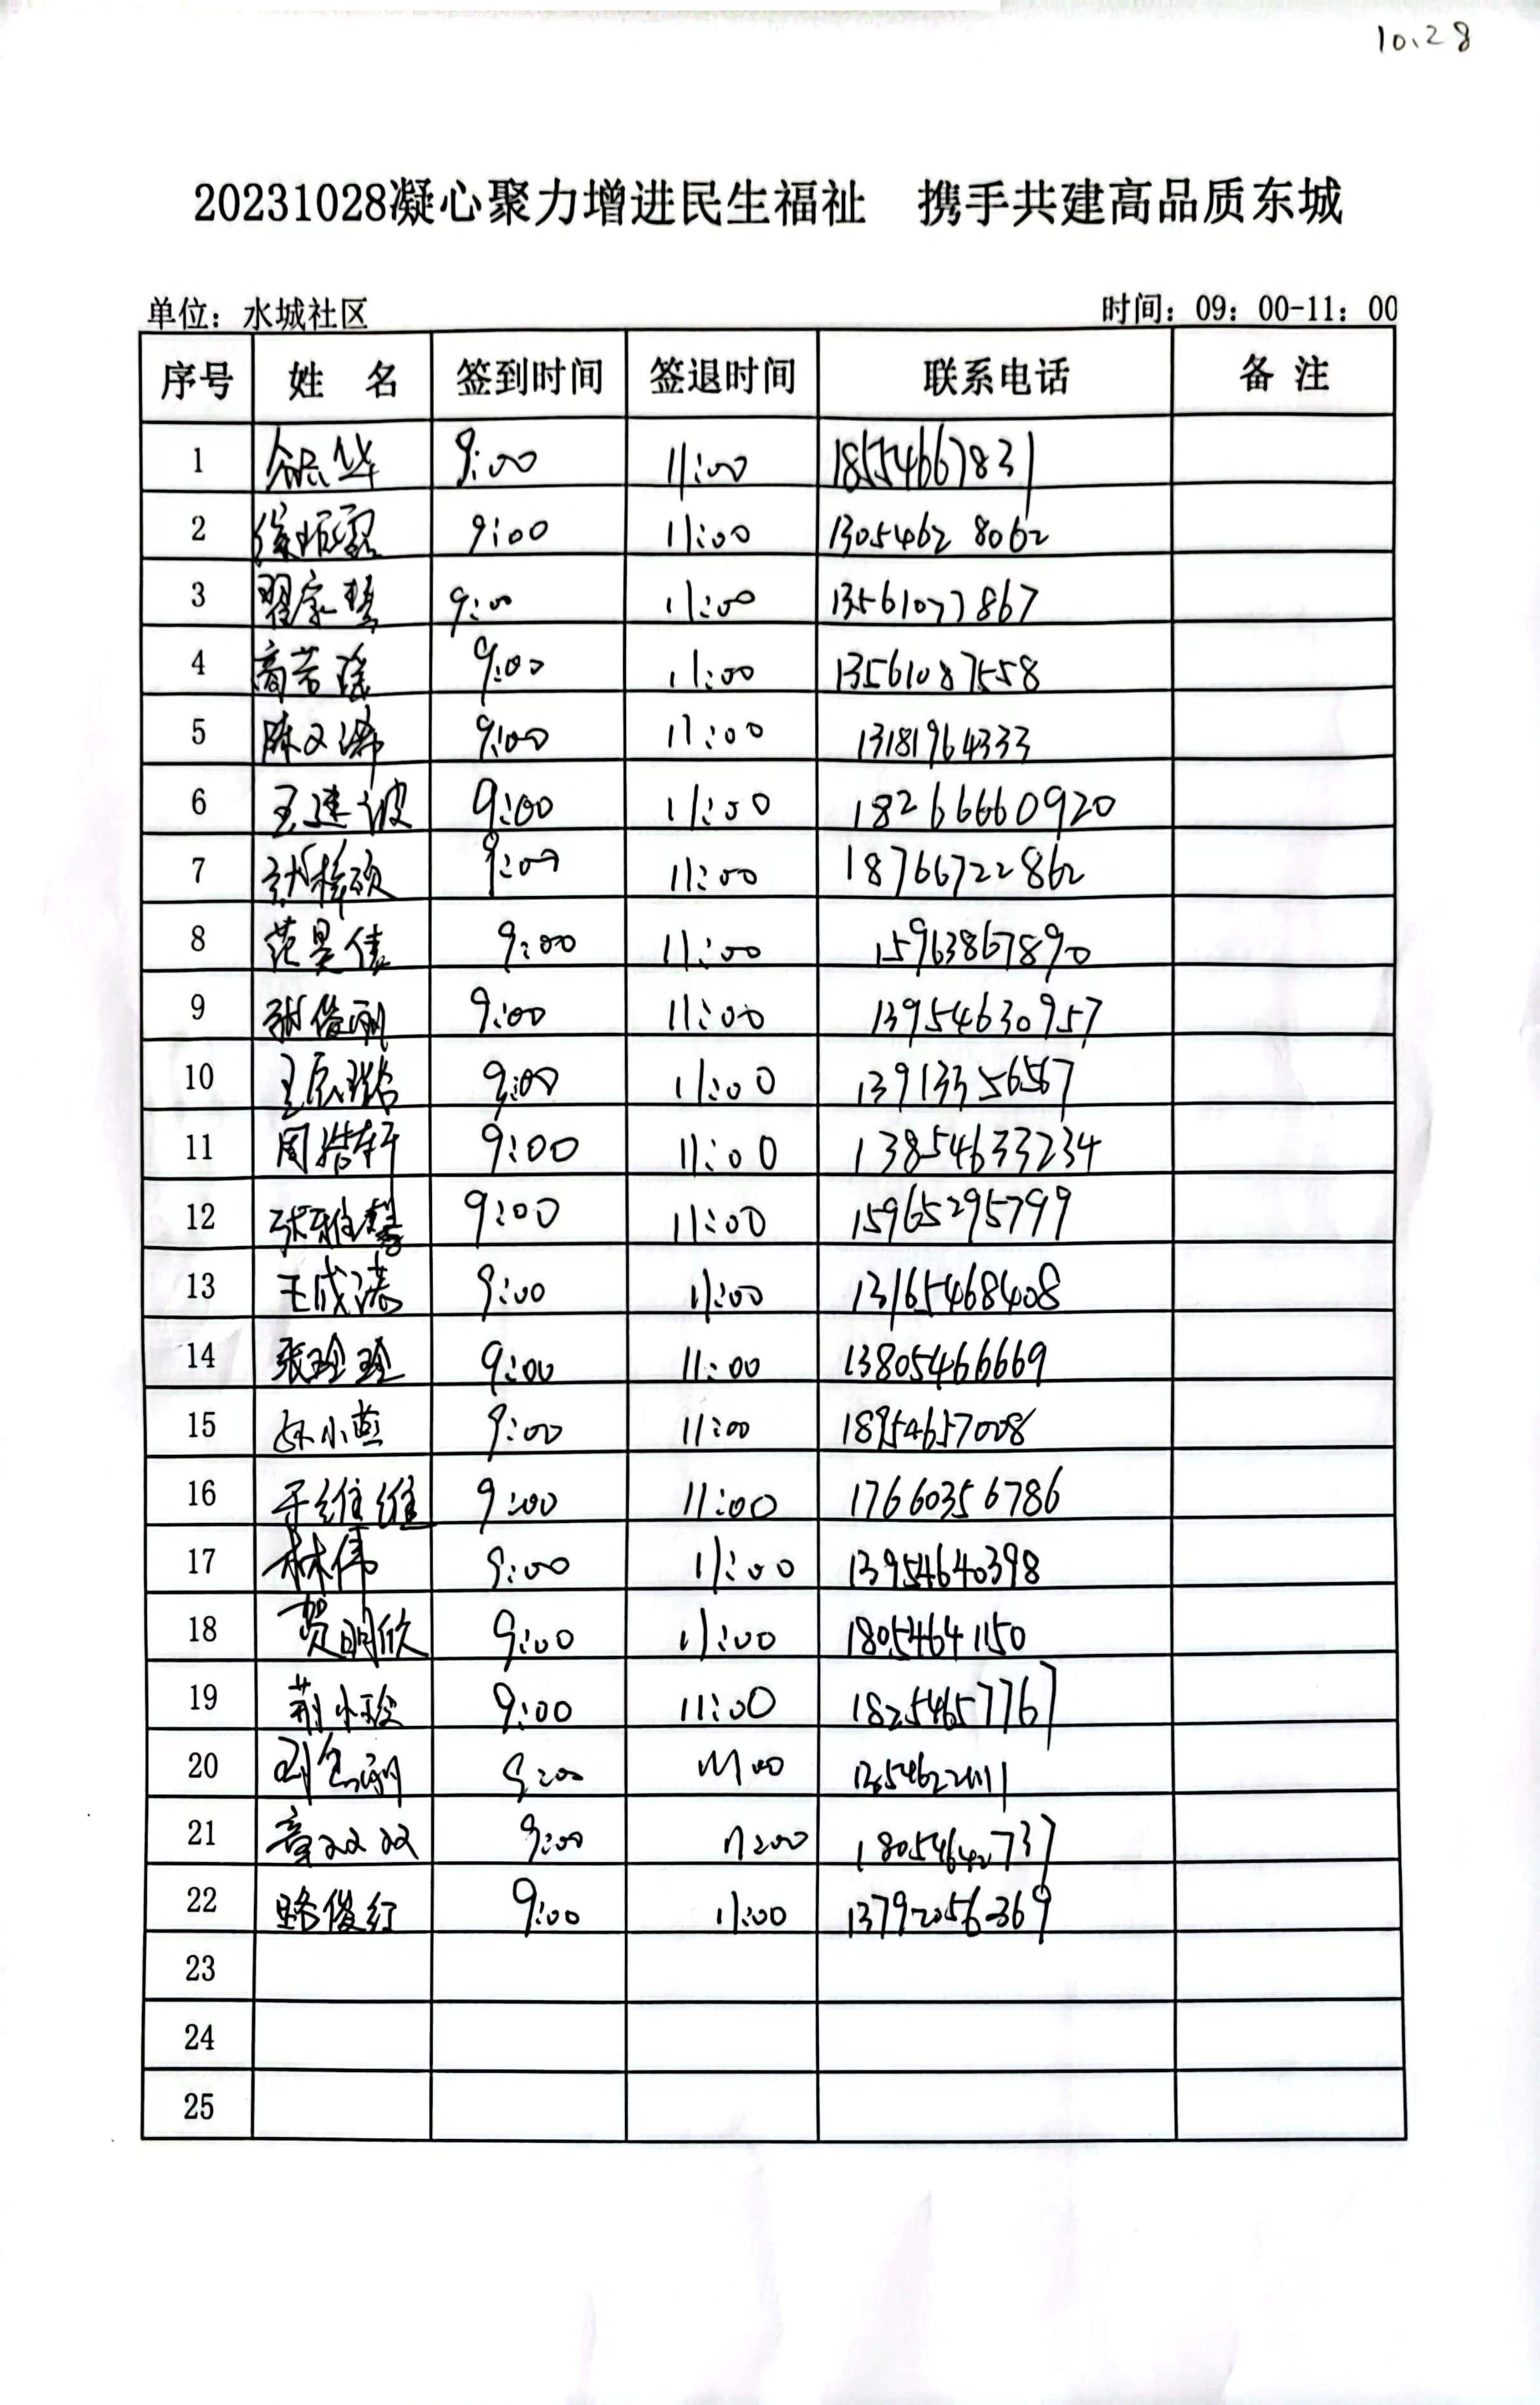 10、28
20231028凝心聚力增进民生福祉 携手共建高品质东城
单位：水城社区 时间：09：00-11：00
序号 姓 名 签到时间 签退时间 联系电话 备 注
1 9:00 11:00 18554667831
2 9:00 11:00 13054628062
3 翟家慧 9:00 11:00 13561077867
4 高若瑶 9:00 11:00 13561087558
5 陈文潇 9:00 11:00 13181964333
6 王建波 9:00 11:00 18266660920
7 张梓硕 9:00 11:00 18766722862
8 范昊倩 9:00 11:00 15963867890
9 张俊丽 9:00 11:00 13954630957
10 王辰璐 9:00 11:00 13913356567
11 周浩轩 9:00 11:00 13854633234
12 张雅馨 9:00 11:00 15965295799
13 王成涛 9:00 11:00 13165468408
14 张玲玲 9:00 11:00 13805466669
15 孙小燕 9:00 11:00 18954657008
16 于维维 9:00 11:00 17660356786
17 林伟 9:00 11:00 13954640398
18 贾明欣 9:00 11:00 18054641150
19 荆小珍 9:00 11:00 18254657767
20 9:00 11:00
21 章双双 9:00 11:00 18054642737
22 路俊红 9:00 11:00 13792056369
23
24
25